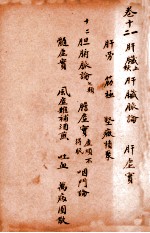 卷十一 肝臟上 肝臟脉論 肝虛實
肝勞 筋極 堅癥積聚
十二 胆腑 胆腑脉論 胆虛實 咽門論
髓虛實 風虛雜補酒煎 吐血 萬病圓散